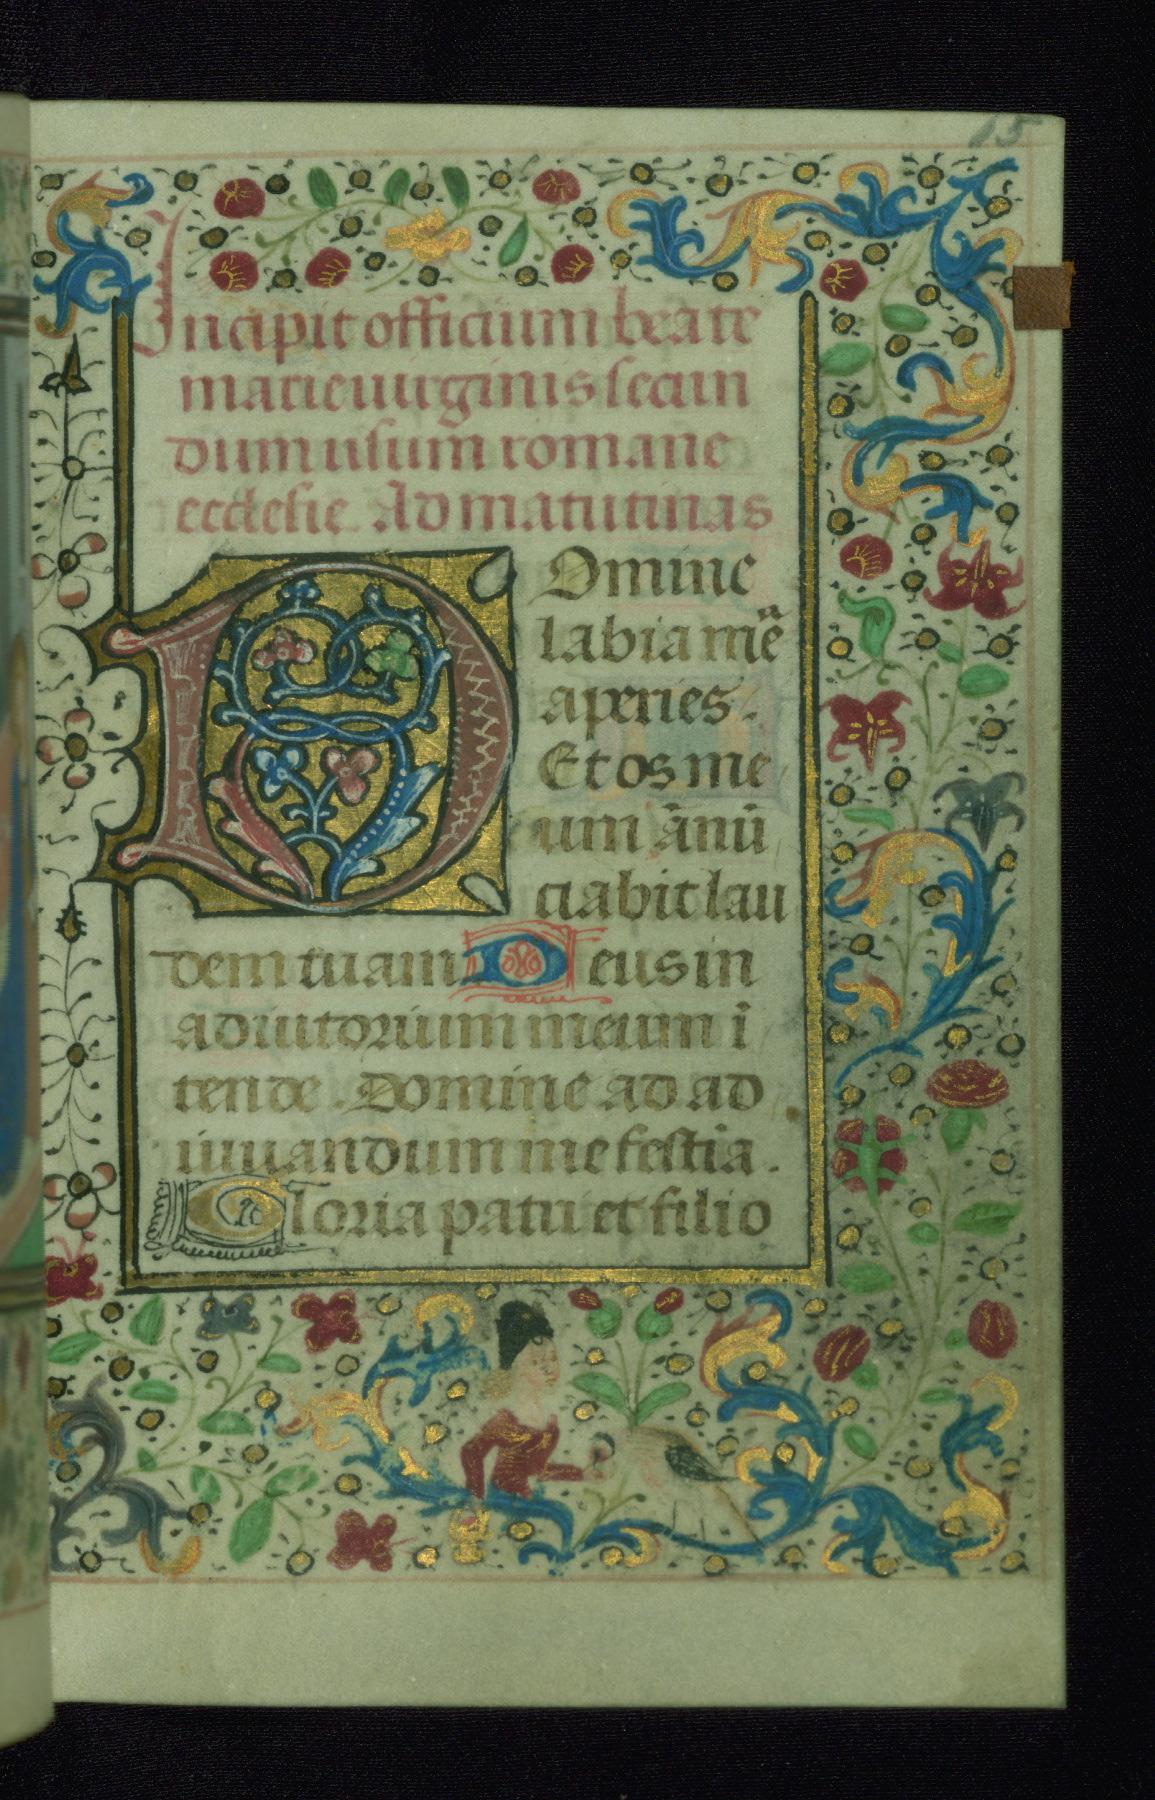 15
Incipit officium beate
marie uirginis secun
dum usum romane
ecclesie Ad matutinas
Domine
labia mea
aperies.
Et os me
um ānū
ciabit lau
dem tuam Deus in
adiutorium meum ī
tende. Domine ad ad
iuuandum me festīa.
Gloria patri et filio